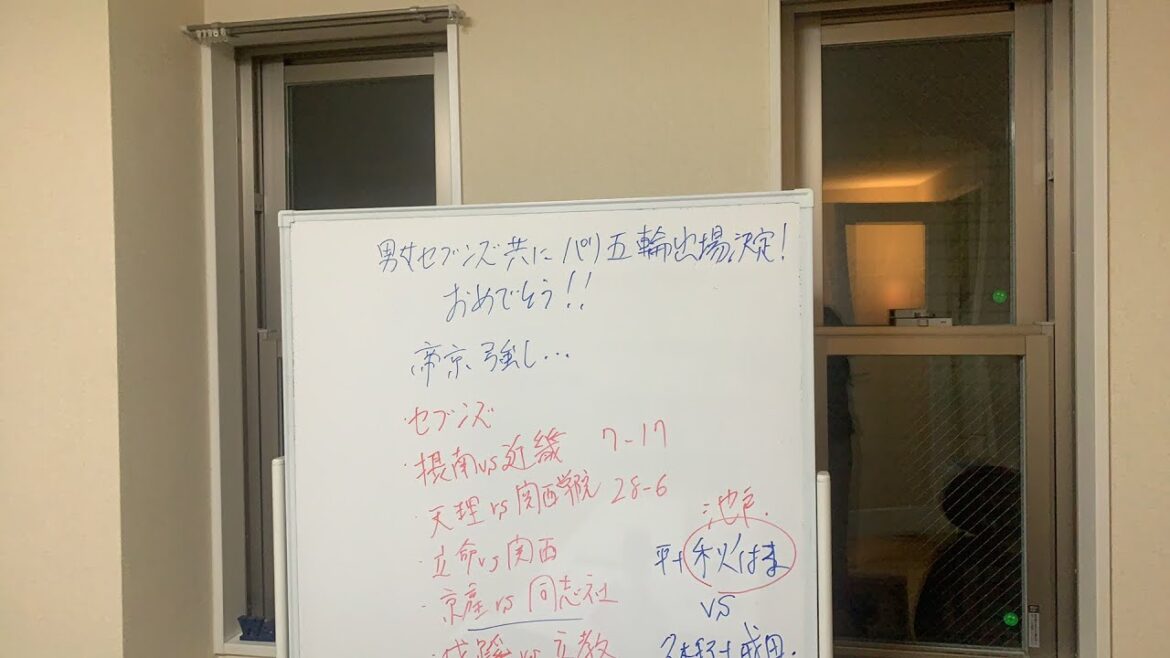 男女セブンズ共にパリ五輪出場決定!
おめでとう!!
帝京強し...
・セブンズ
・摂南vs近畿 7-17
・天理vs関西学院 28-6
・立命vs関西
・京産vs同志社
vs立教
池戸.
秋はま
vs
成田.